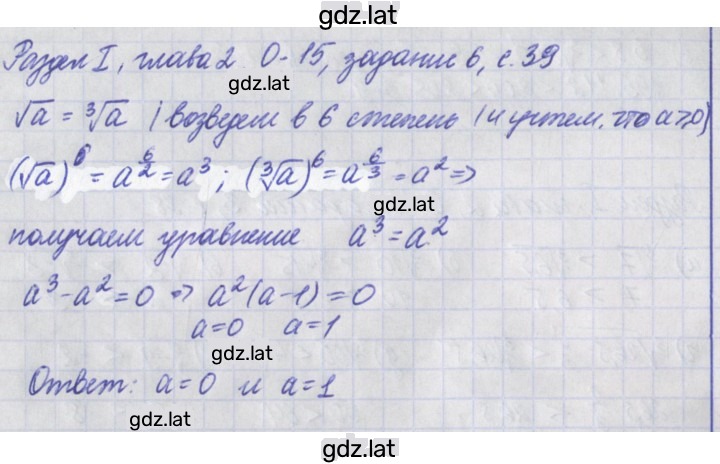 gdz.lat
Раздел I, глава 2 О-15, задание 6, с. 39
gdz.lat
√a = ∛a | возведем в 6 степень (и учтем, что a ≥ 0)
(√a)⁶ = a^(6/2) = a³ ; (∛a)⁶ = a^(6/3) = a² =>
gdz.lat
получаем уравнение a³ = a²
a³ - a² = 0 => a²(a-1) = 0
a=0 a=1
gdz.lat
Ответ: a=0 и a=1
gdz.lat
gdz.lat